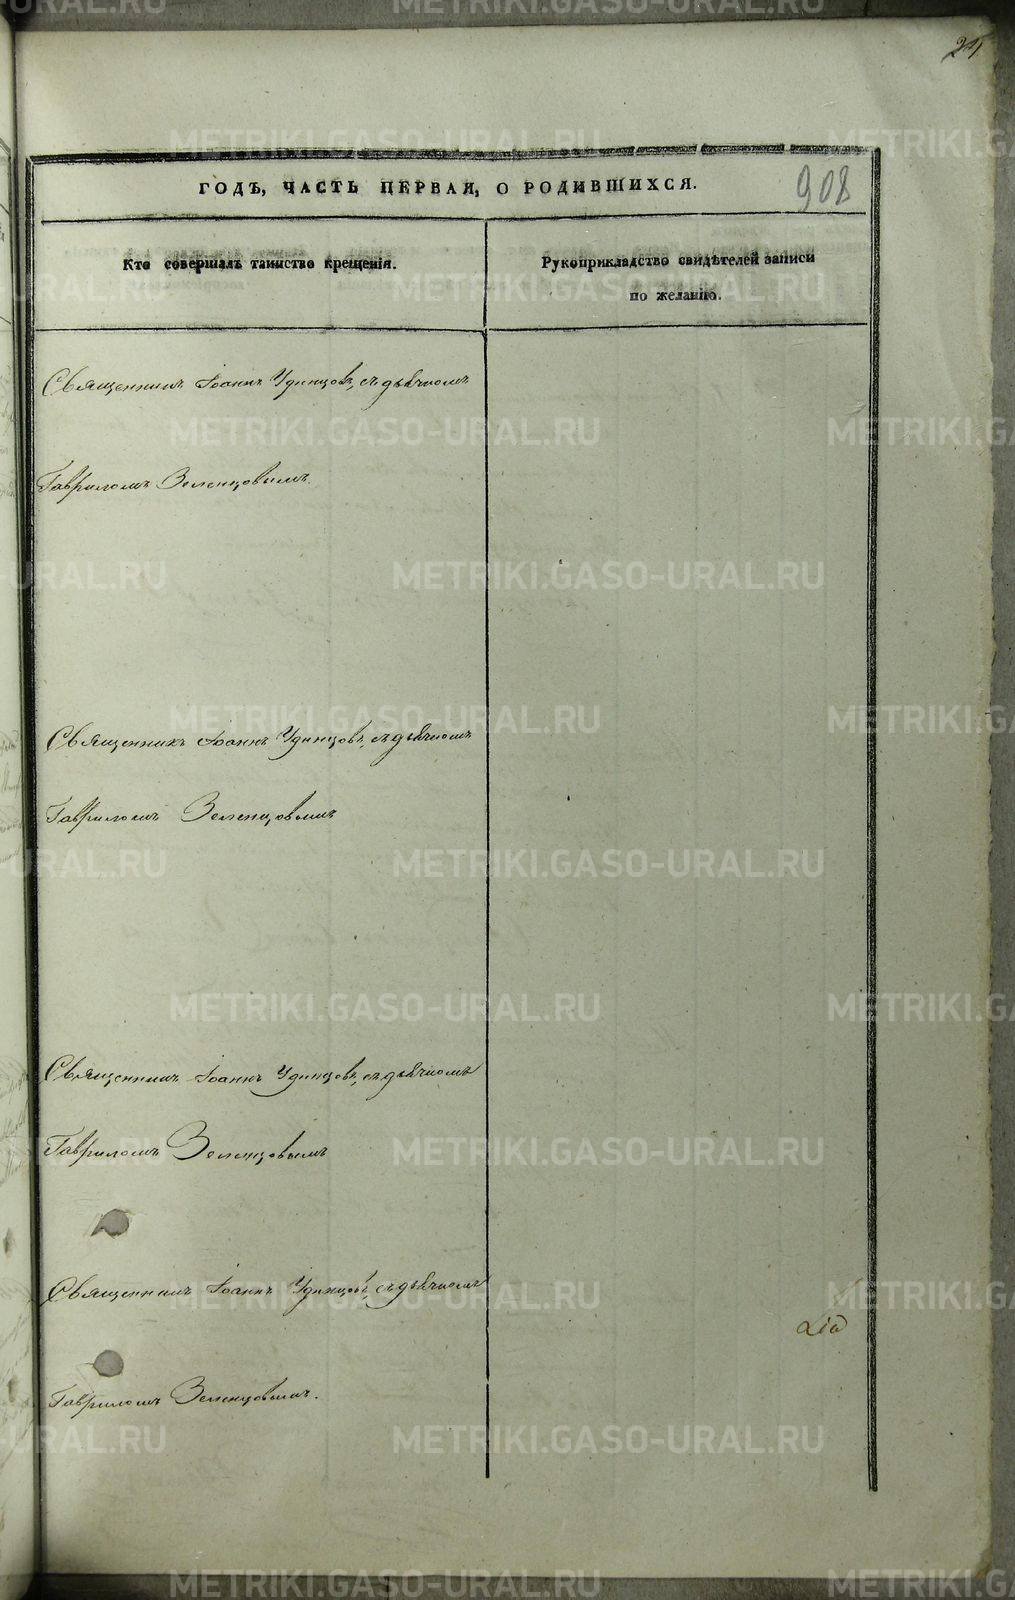 24
ГОДЪ, ЧАСТЬ ПЕРВАЯ, О РОДИВШИХСЯ.
908
Кто совершалъ таинство крещенія.
Рукоприкладство свидѣтелей записи
по желанію.
Священникъ Іоаннъ Удинцовъ, съ дьячкомъ
Гавриломъ Зеленцовымъ.
Священникъ Іоаннъ Удинцовъ, съ дьячкомъ
Гавриломъ Зеленцовымъ
Священникъ Іоаннъ Удинцовъ, съ дьячкомъ
Гавриломъ Зеленцовымъ
Священникъ Іоаннъ Удинцовъ, съ дьячкомъ
Гавриломъ Зеленцовымъ.
METRIKI.GASO-URAL.RU